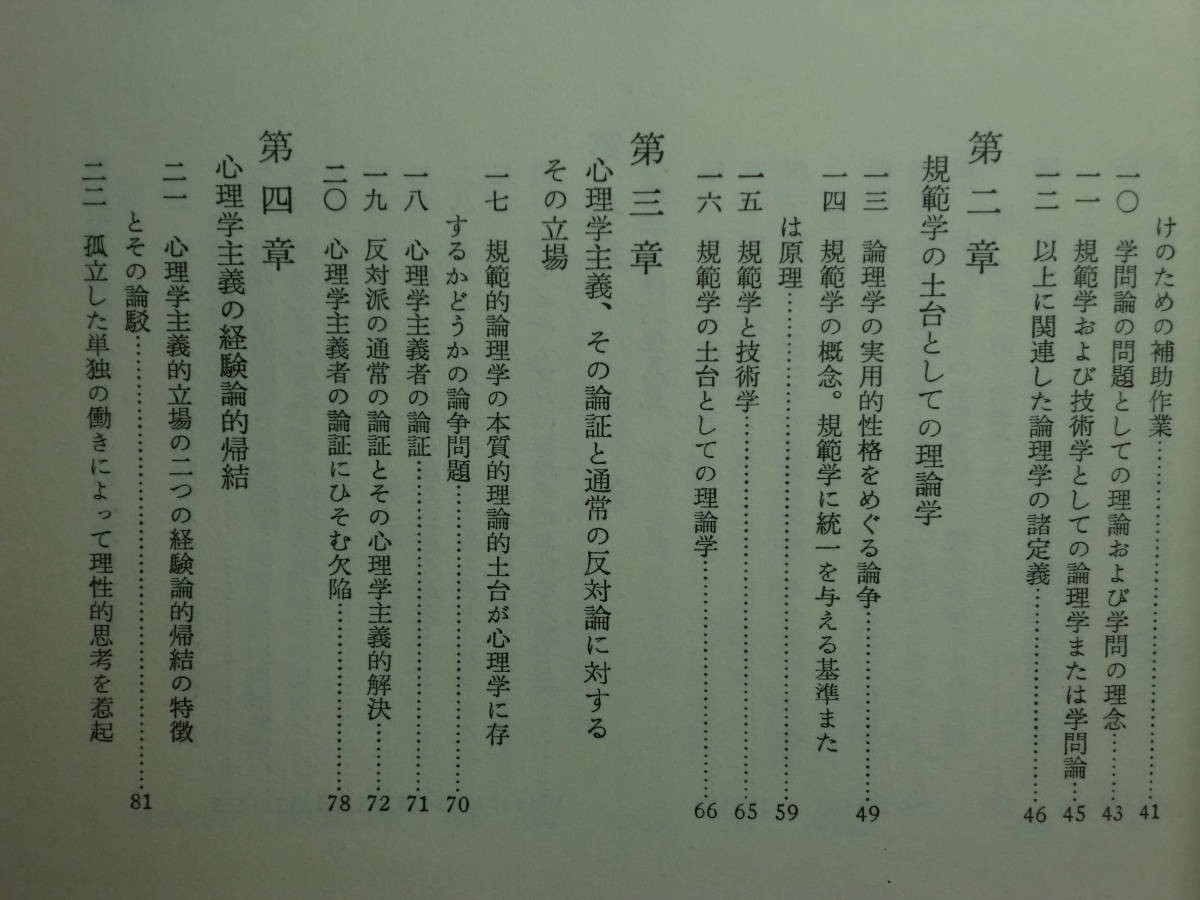 けのための補助作業……………………………………41
一〇　学問論の問題としての理論および学問の理念………43
一一　規範学および技術学としての論理学または学問論…45
一二　以上に関連した論理学の諸定義……………………46
第二章
規範学の土台としての理論学
一三　論理学の実用的性格をめぐる論争…………………49
一四　規範学の概念。規範学に統一を与える基準また
は原理……………………………………………………59
一五　規範学と技術学……………………………………65
一六　規範学の土台としての理論学………………………66
第三章
心理学主義、その論証と通常の反対論に対する
その立場
一七　規範的論理学の本質的理論的土台が心理学に存
するかどうかの論争問題…………………………………70
一八　心理学主義者の論証…………………………………71
一九　反対派の通常の論証とその心理学主義的解決………72
二〇　心理学主義者の論証にひそむ欠陥…………………78
第四章
心理学主義の経験論的帰結
二一　心理学主義的立場の二つの経験論的帰結の特徴
とその論駁…………………………………………………81
二二　孤立した単独の働きによって理性的思考を惹起